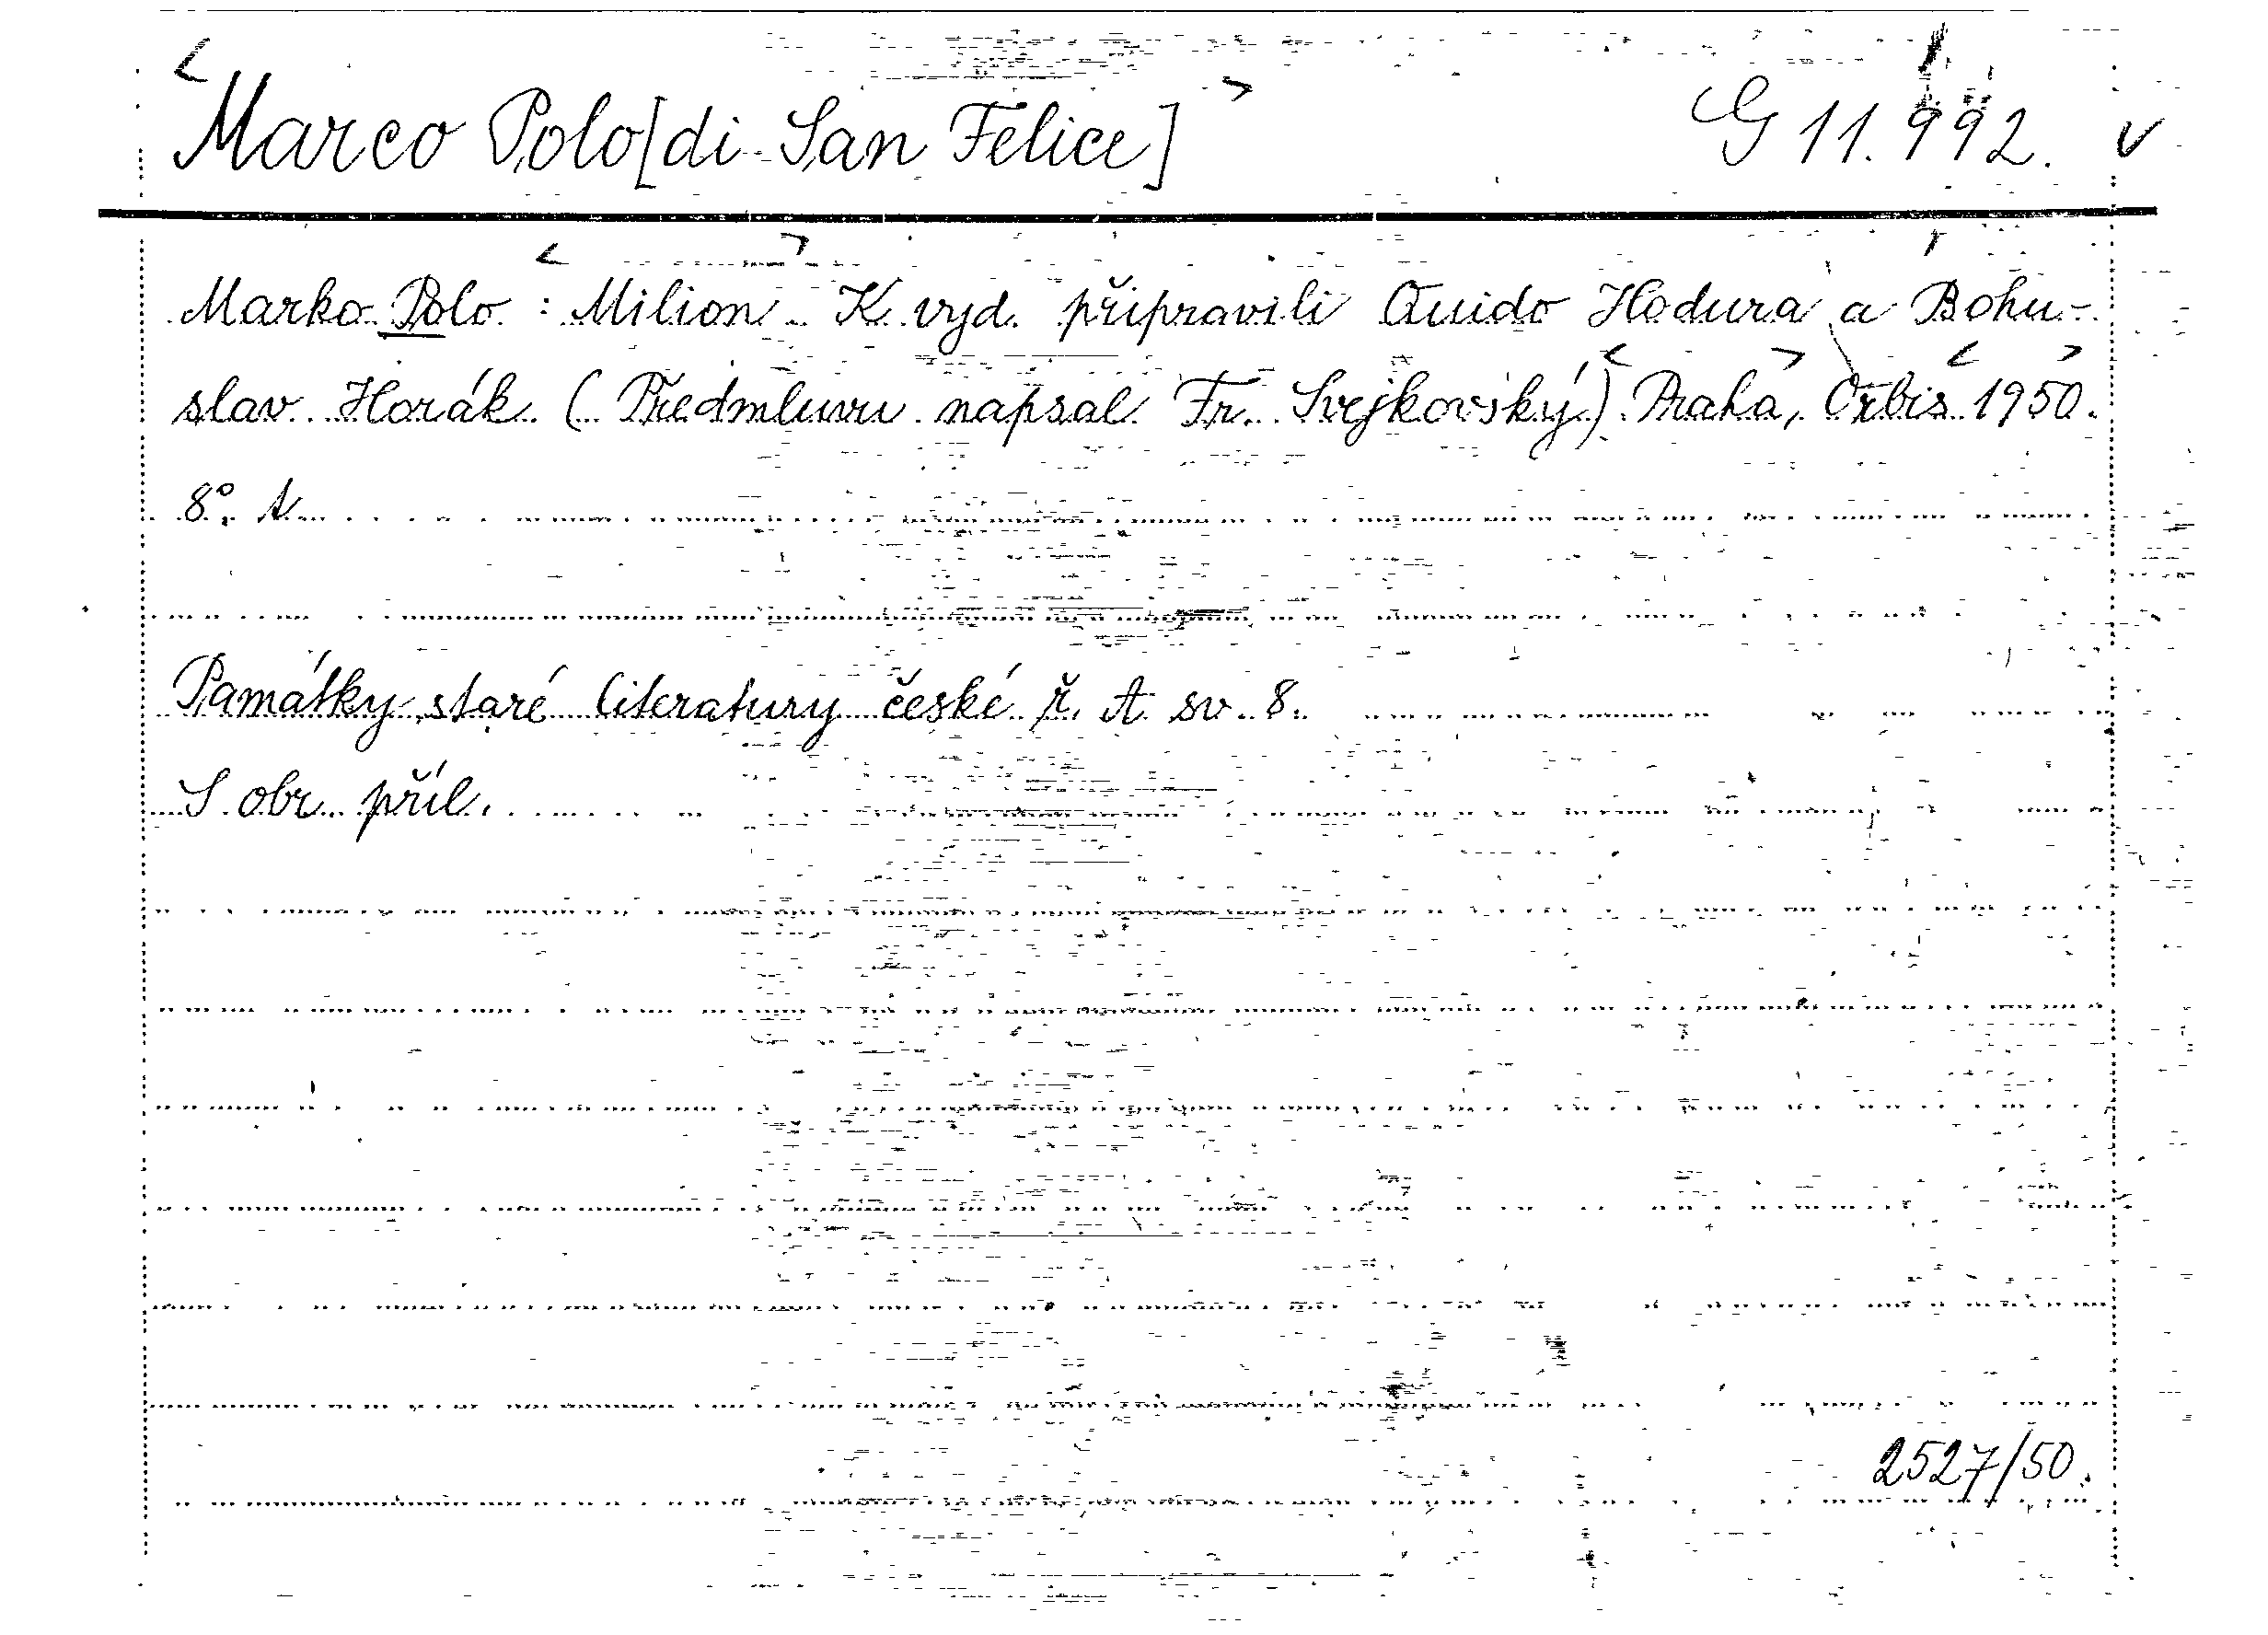 <Marco Polo [di San Felice]> G 11.992. v
Marko Polo : <Milion> K vyd. připravili Quido Hodura a Bohu-
slav Horák. (Předmluvu napsal Fr. Svejkovský.) <Praha>, <Orbis> 1950.
8°.
Památky staré literatury české ř. A sv. 8.
S obr. příl.
2527/50.